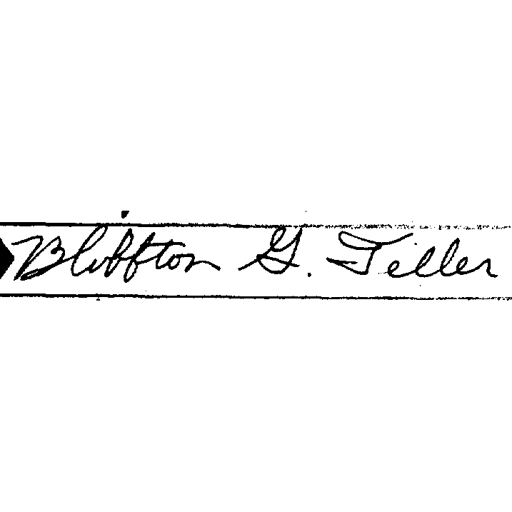 Bliffton G. Teller